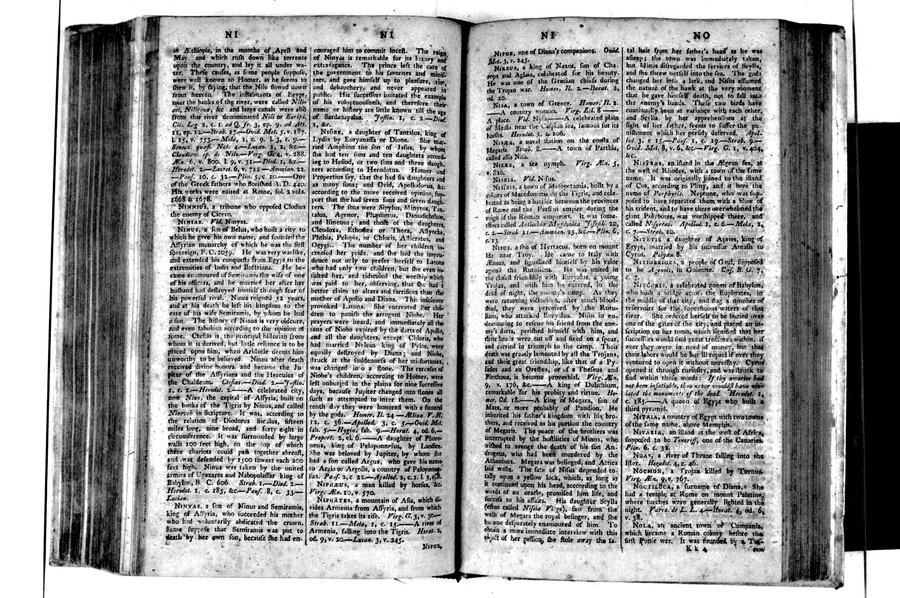 NI
in Æthiopia, in the months of April and
May, and which rush down like torrents
upon the country, and lay it all under wa-
ter. These causes, as some people suppose,
were well known to Homer, as he seems to
shew it, by saying, that the Nile flowed down
from heaven. The inhabitants of Egypt,
near the banks of the river, were called
&c. and large canals were also
from this river denominated Nili or Euripi.
of the Greek fathers who flourished A. D. 440.
His works were edited at Rome, fol. 2 vols.
1668 & 1678.
NINNIUS, a tribune who opposed Clodius
the enemy of Cicero.
NINIAS. Vid. Ninyas.
NINUS, a son of Belus, who built a city to
which he gave his own name, and founded the
Assyrian monarchy of which he was the first
sovereign, B. C. 2059. He was very warlike,
and extended his conquests from Egypt to the
extremities of India and Bactriana. He be-
came enamoured of Semiramis the wife of one
of his officers, and he married her after her
husband had destroyed himself through fear of
his powerful rival. Ninus reigned 52 years,
and at his death he left his kingdom to the
care of his wife Semiramis, by whom he had
a son. The history of Ninus is very obscure,
and even fabulous according to the opinion of
some. Ctesias is the principal historian from
whom it is derived, but little reliance is to be
placed upon him, when Aristotle deems him
unworthy to be believed. Ninus after death
received divine honors, and became the Ju-
piter of the Assyrians and the Hercules of
the Chaldeans. Ctesias.—Diod. 2.—Justin.
1, c. 1.—Herodot. 2.—A celebrated city,
now Nino, the capital of Assyria, built on
the banks of the Tigris by Ninus, and called
Nineveh in Scripture. It was, according to
the relation of Diodorus Siculus, fifteen
miles long, nine broad, and forty eight in
circumference. It was surrounded by large
walls 100 feet high, on the top of which
three chariots could pass together abreast,
and was defended by 1500 towers each 200
feet high. Ninus was taken by the united
armies of Cyaxares and Nabopolassar king of
Babylon, B. C. 606. Strab. 1.—Diod. 2.—
Herodot. 1, c. 185, &c.—Paus. 8, c. 33.—
Lucian.
NINYAS, a son of Ninus and Semiramis,
king of Assyria, who succeeded his mother
who had voluntarily abdicated the crown.
Some suppose that Semiramis was put to
death by her own son, because she had en-
NI
couraged him to commit incest. The reign
of Ninyas is remarkable for its luxury and
extravagance. The prince left the care of
the government to his favorites and minis-
ters, and gave himself up to pleasure, riot,
and debauchery, and never appeared in
public. His successors imitated the example
of his voluptuousness, and therefore their
name or history are little known till the age
of Sardanapalus. Justin. 1, c. 2.—Diod.
1, &c.
NIOBE, a daughter of Tantalus, king of
Lydia by Euryanassa or Dione. She mar-
ried Amphion the son of Jasus, by whom
she had ten sons and ten daughters accord-
ing to Hesiod, or two sons and three daugh-
ters according to Herodotus. Homer and
Propertius say, that she had six daughters and
as many sons; and Ovid, Apollodorus, &c.
according to the more received opinion, sup-
port that she had seven sons and seven daugh-
ters. The sons were Sipylus, Minytus, Tan-
talus, Agenor, Phædimus, Damasichthon,
and Ismenus; and those of the daughters,
Cleodoxa, Ethodæa or Thera, Astyche,
Phthia, Pelopia, or Chloris, Asticratea, and
Ogygia. The number of her children in-
creased her pride, and she had the impru-
dence not only to prefer herself to Latona
who had only two children, but she even in-
sulted her, and ridiculed the worship which
was paid to her, observing, that she had a
better claim to altars and sacrifices than the
mother of Apollo and Diana. This insolence
provoked Latona. She entreated her chil-
dren to punish the arrogant Niobe. Her
prayers were heard, and immediately all the
sons of Niobe expired by the darts of Apollo,
and all the daughters, except Chloris, who
had married Neleus king of Pylos, were
equally destroyed by Diana; and Niobe,
struck at the suddenness of her misfortunes,
was changed into a stone. The carcases of
Niobe's children, according to Homer, were
left unburied in the plains for nine successive
days, because Jupiter changed into stones all
such as attempted to inter them. On the
tenth day they were honored with a funeral
by the gods. Homer. Il. 24.—Ælian. V. H.
12, c. 36.—Apollod. 3, c. 5.—Ovid. Met.
fab. 5.—Hygin. fab. 9.—Horat. 4, od. 6.—
Propert. 2, el. 6.—A daughter of Phoro-
neus, king of Peloponnesus, by Laodice.
She was beloved by Jupiter, by whom she
had a son called Argus, who gave his name
to Argia or Argolis, a country of Peloponne-
sus. Paus. 2, c. 22.—Apollod. 2, c. 1. l. 3, c. 8.
NIPHÆUS, a man killed by horses, &c.
Virg. Æn. 10, v. 570.
NIPHATES, a mountain of Asia, which di-
vides Armenia from Assyria, and from which
the Tigris takes its rise. Virg. G. 3, v. 30.—
Strab. 11.—Mela, 1, c. 15.—A river of
Armenia, falling into the Tigris. Horat. 2,
od. 9, v. 20.—Lucan. 3, v. 245.
NIPHE,
NI
NIPHE, one of Diana's companions. Ovid.
Met. 3, v. 245.
NIREUS, a king of Naxos, son of Cha-
rops and Aglaia, celebrated for his beauty.
He was one of the Grecian chiefs during
the Trojan war. Homer. Il. 2.—Horat. 2,
od. 20.
NISA, a town of Greece. Homer. Il. 2.
—A country woman. Virg. Ecl. 8.—
A place. Vid. Nysa.—A celebrated plain
of Media near the Caspian sea, famous for its
horses. Herodot. 3, c. 106.
NISÆA, a naval station on the coasts of
Megaris. Strab. 8.—A town of Parthia,
called also Nisa.
NISÆE, a sea nymph. Virg. Æn. 5,
v. 826.
NISEIA. Vid. Nisus.
NISIBIS, a town of Mesopotamia, built by a
colony of Macedonians on the Tigris, and cele-
brated as being a barrier between the provinces
of Rome and the Persian empire during the
reign of the Roman emperors. It was some-
times called Antiochia Mygdonica. Joseph. 20,
c. 2.—Strab. 11.—Ammian. 25, &c.—Plin. 6,
c. 13.
NISUS, a son of Hyrtacus, born on mount
Ida near Troy. He came to Italy with
Æneas, and signalized himself by his valor
against the Rutulians. He was united in
the closest friendship with Euryalus, a young
Trojan, and with him he entered, in the
dead of night, the enemy's camp. As they
were returning victorious, after much blood-
shed, they were perceived by the Rutu-
lians, who attacked Euryalus. Nisus in en-
deavouring to rescue his friend from the ene-
my's darts, perished himself with him, and
their heads were cut off and fixed on a spear,
and carried in triumph to the camp. Their
death was greatly lamented by all the Trojans,
and their great friendship, like that of a Py-
lades and an Orestes, or of a Theseus and
Pirithous, is become proverbial. Virg. Æn.
9, v. 176, &c.—A king of Dulichium,
remarkable for his probity and virtue. Ho-
mer. Od. 18.—A king of Megara, son of
Mars, or more probably of Pandion. He
inherited his father's kingdom with his bro-
thers, and received as his portion the country
of Megaris. The peace of the brothers was
interrupted by the hostilities of Minos, who
wished to avenge the death of his son An-
drogeus, who had been murdered by the
Athenians. Megara was besieged, and Attica
laid waste. The fate of Nisus depended to-
tally upon a yellow lock, which, as long as
it continued upon his head, according to the
words of an oracle, promised him life, and
success to his affairs. His daughter Scylla
(often called Niseia Virgo), saw from the
walls of Megara the royal besieger, and she
became desperately enamoured of him. To
obtain a more immediate interview with this
object of her passion, she stole away the fa-
NO
tal hair from her father's head as he was
asleep; the town was immediately taken,
but Minos disregarded the services of Scylla,
and she threw herself into the sea. The gods
changed her into a lark, and Nisus assumed
the nature of the hawk at the very moment
that he gave himself death, not to fall into
the enemy's hands. These two birds have
continually been at variance with each other,
and Scylla, by her apprehensions at the
sight of her father, seems to suffer the pu-
nishment which her perfidy deserved. Apol-
lod. 3, c. 15.—Paus. 1, c. 19.—Strab. 9.—
Ovid. Met. 8, v. 6, &c.—Virg. G. 1, v. 404,
&c.
NISYROS, an island in the Ægean sea, at
the west of Rhodes, with a town of the same
name. It was originally joined to the island
of Cos, according to Pliny, and it bore the
name of Porphyris. Neptune, who was sup-
posed to have separated them with a blow of
his trident, and to have there overwhelmed the
giant Polybotes, was worshipped there, and
called Nisyreus. Apollod. 1, c. 6.—Mela, 2,
c. 7.
NITETIS, a daughter of Apries, king of
Egypt, married by his successor Amasis to
Cyrus. Polyæn. 8.
NITIOBRIGES, a people of Gaul, supposed
to be Agenois, in Guienne. Cæs. B. G. 7,
c. 7.
NITOCRIS, a celebrated queen of Babylon,
who built a bridge across the Euphrates, in
the middle of that city, and dug a number of
reservoirs for the superfluous waters of that
river. She ordered herself to be buried over
one of the gates of the city, and placed an in-
scription on her tomb, which signified that her
successors would find great treasures within, if
ever they were in need of money, but that
their labors would be but ill repaid if ever they
ventured to open it without necessity. Cyrus
opened it through curiosity, and was struck to
find within these words: If thy avarice had
not been insatiable, thou never wouldst have vio-
lated the monuments of the dead. Herodot. 1,
c. 185.—A queen of Egypt who built a
third pyramid.
NITRIA, a country of Egypt with two towns
of the same name, above Memphis.
NIVARIA, an island at the west of Africa,
supposed to be Teneriff, one of the Canaries.
Plin. 6, c. 32.
NOAS, a river of Thrace falling into the
Ister. Herodot. 4, c. 46.
NOCMON, a Trojan killed by Turnus.
Virg. Æn. 9, v. 767.
NOCTILUCA, a surname of Diana. She
had a temple at Rome on mount Palatine,
where torches were generally lighted in the
night. Varro de L. L. 4.—Horat. 4, od. 6,
v. 38.
NOLA, an ancient town of Campania,
which became a Roman colony before the
first Punic war. It was founded by a Tus-
K k 4
can